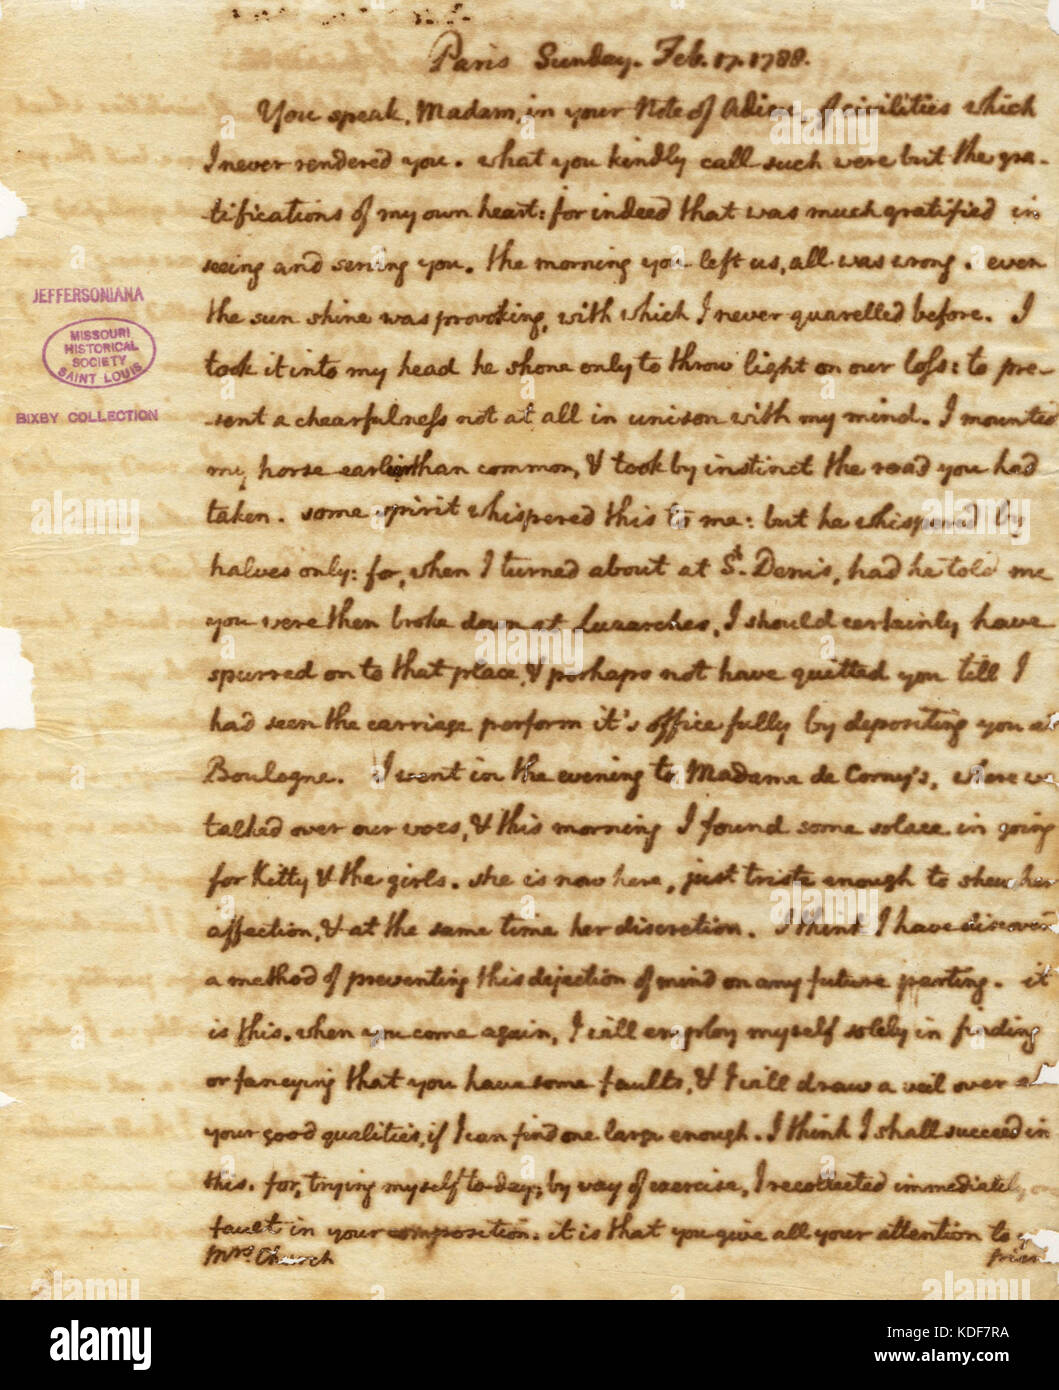 Paris Sunday. Feb. 17. 1788.
You speak, Madam, in your Note of Adieu, of civilities which
I never rendered you. what you kindly call such were but the gra-
tifications of my own heart: for indeed that was much gratified in
seeing and serving you. the morning you left us, all was wrong. even
the sun shine was provoking, with which I never quarelled before. I
took it into my head he shone only to throw light on our loss: to pre-
sent a chearfulness not at all in unison with my mind. I mounted
my horse earlier than common, & took by instinct the road you had
taken. some spirit whispered this to me: but he whispered by
halves only: for, when I turned about at St. Denis, had he told me
you were then broke down at Luzarches, I should certainly have
spurred on to that place, & perhaps not have quitted you till I
had seen the carriage perform it's office fully by depositing you at
Boulogne. I went in the evening to Madame de Corny's, where we
talked over our woes, & this morning I found some solace in going
for Kitty & the girls. she is now here, just triste enough to shew her
affection, & at the same time her discretion. I think I have discovered
a method of preventing this dejection of mind on any future parting. it
is this. when you come again, I will employ myself solely in finding
or fancying that you have some faults, & I will draw a veil over
your good qualities, if I can find one large enough. I think I shall succeed in
this. for, trying myself to-day, by way of exercise, I recollected immediately one
fault in your composition. it is that you give all your attention to
Mrs. Church
JEFFERSONIANA
MISSOURI
HISTORICAL
SOCIETY
SAINT LOUIS
BIXBY COLLECTION
alamy
alamy
alamy
alamy
alamy
alamy
alamy
Image ID: KDF7RA
www.alamy.com